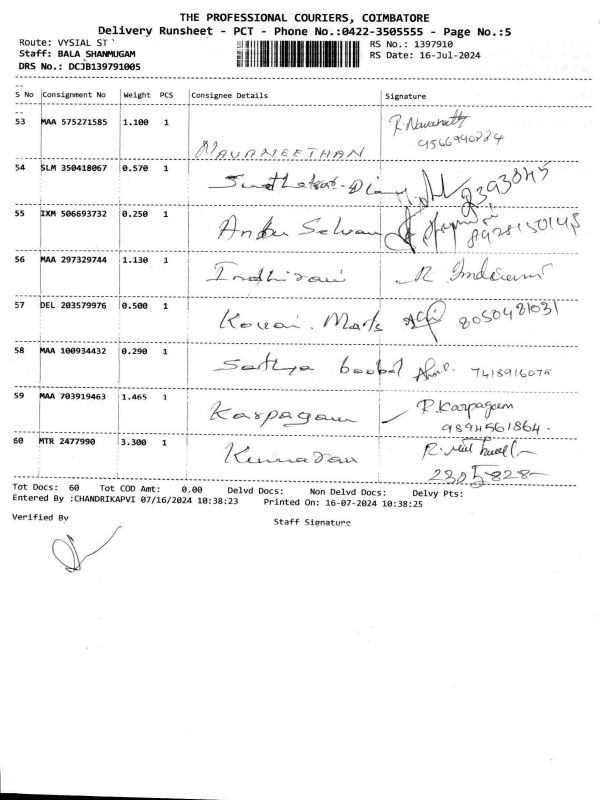 THE PROFESSIONAL COURIERS, COIMBATORE
Delivery Runsheet - PCT - Phone No.:0422-3505555 - Page No.:5
Route: VYSIAL ST `
RS No.: 1397910
Staff: BALA SHANMUGAM
RS Date: 16-Jul-2024
DRS No.: DCJB139791005
S No Consignment No Weight PCS Consignee Details Signature
53 MAA 575271585 1.100 1 NAVANEETHAN R. Navaneeth
9566990884
54 SLM 350418067 0.570 1
55 IXM 506693732 0.250 1 Anbu Selvan 8928150145
56 MAA 297329744 1.130 1 Indhirani R Indirani
57 DEL 203579976 0.500 1 Kovai. Marts 8050481031
58 MAA 100934432 0.290 1 Sathya boobal 7418916075
59 MAA 703919463 1.465 1 Karpagam R. Karpagam
9894561864.
60 MTR 2477990 3.300 1 Kumaran
2305828
Tot Docs: 60 Tot COD Amt: 0.00 Delvd Docs: Non Delvd Docs: Delvy Pts:
Entered By :CHANDRIKAPVI 07/16/2024 10:38:23 Printed On: 16-07-2024 10:38:25
Verified By
Staff Signature